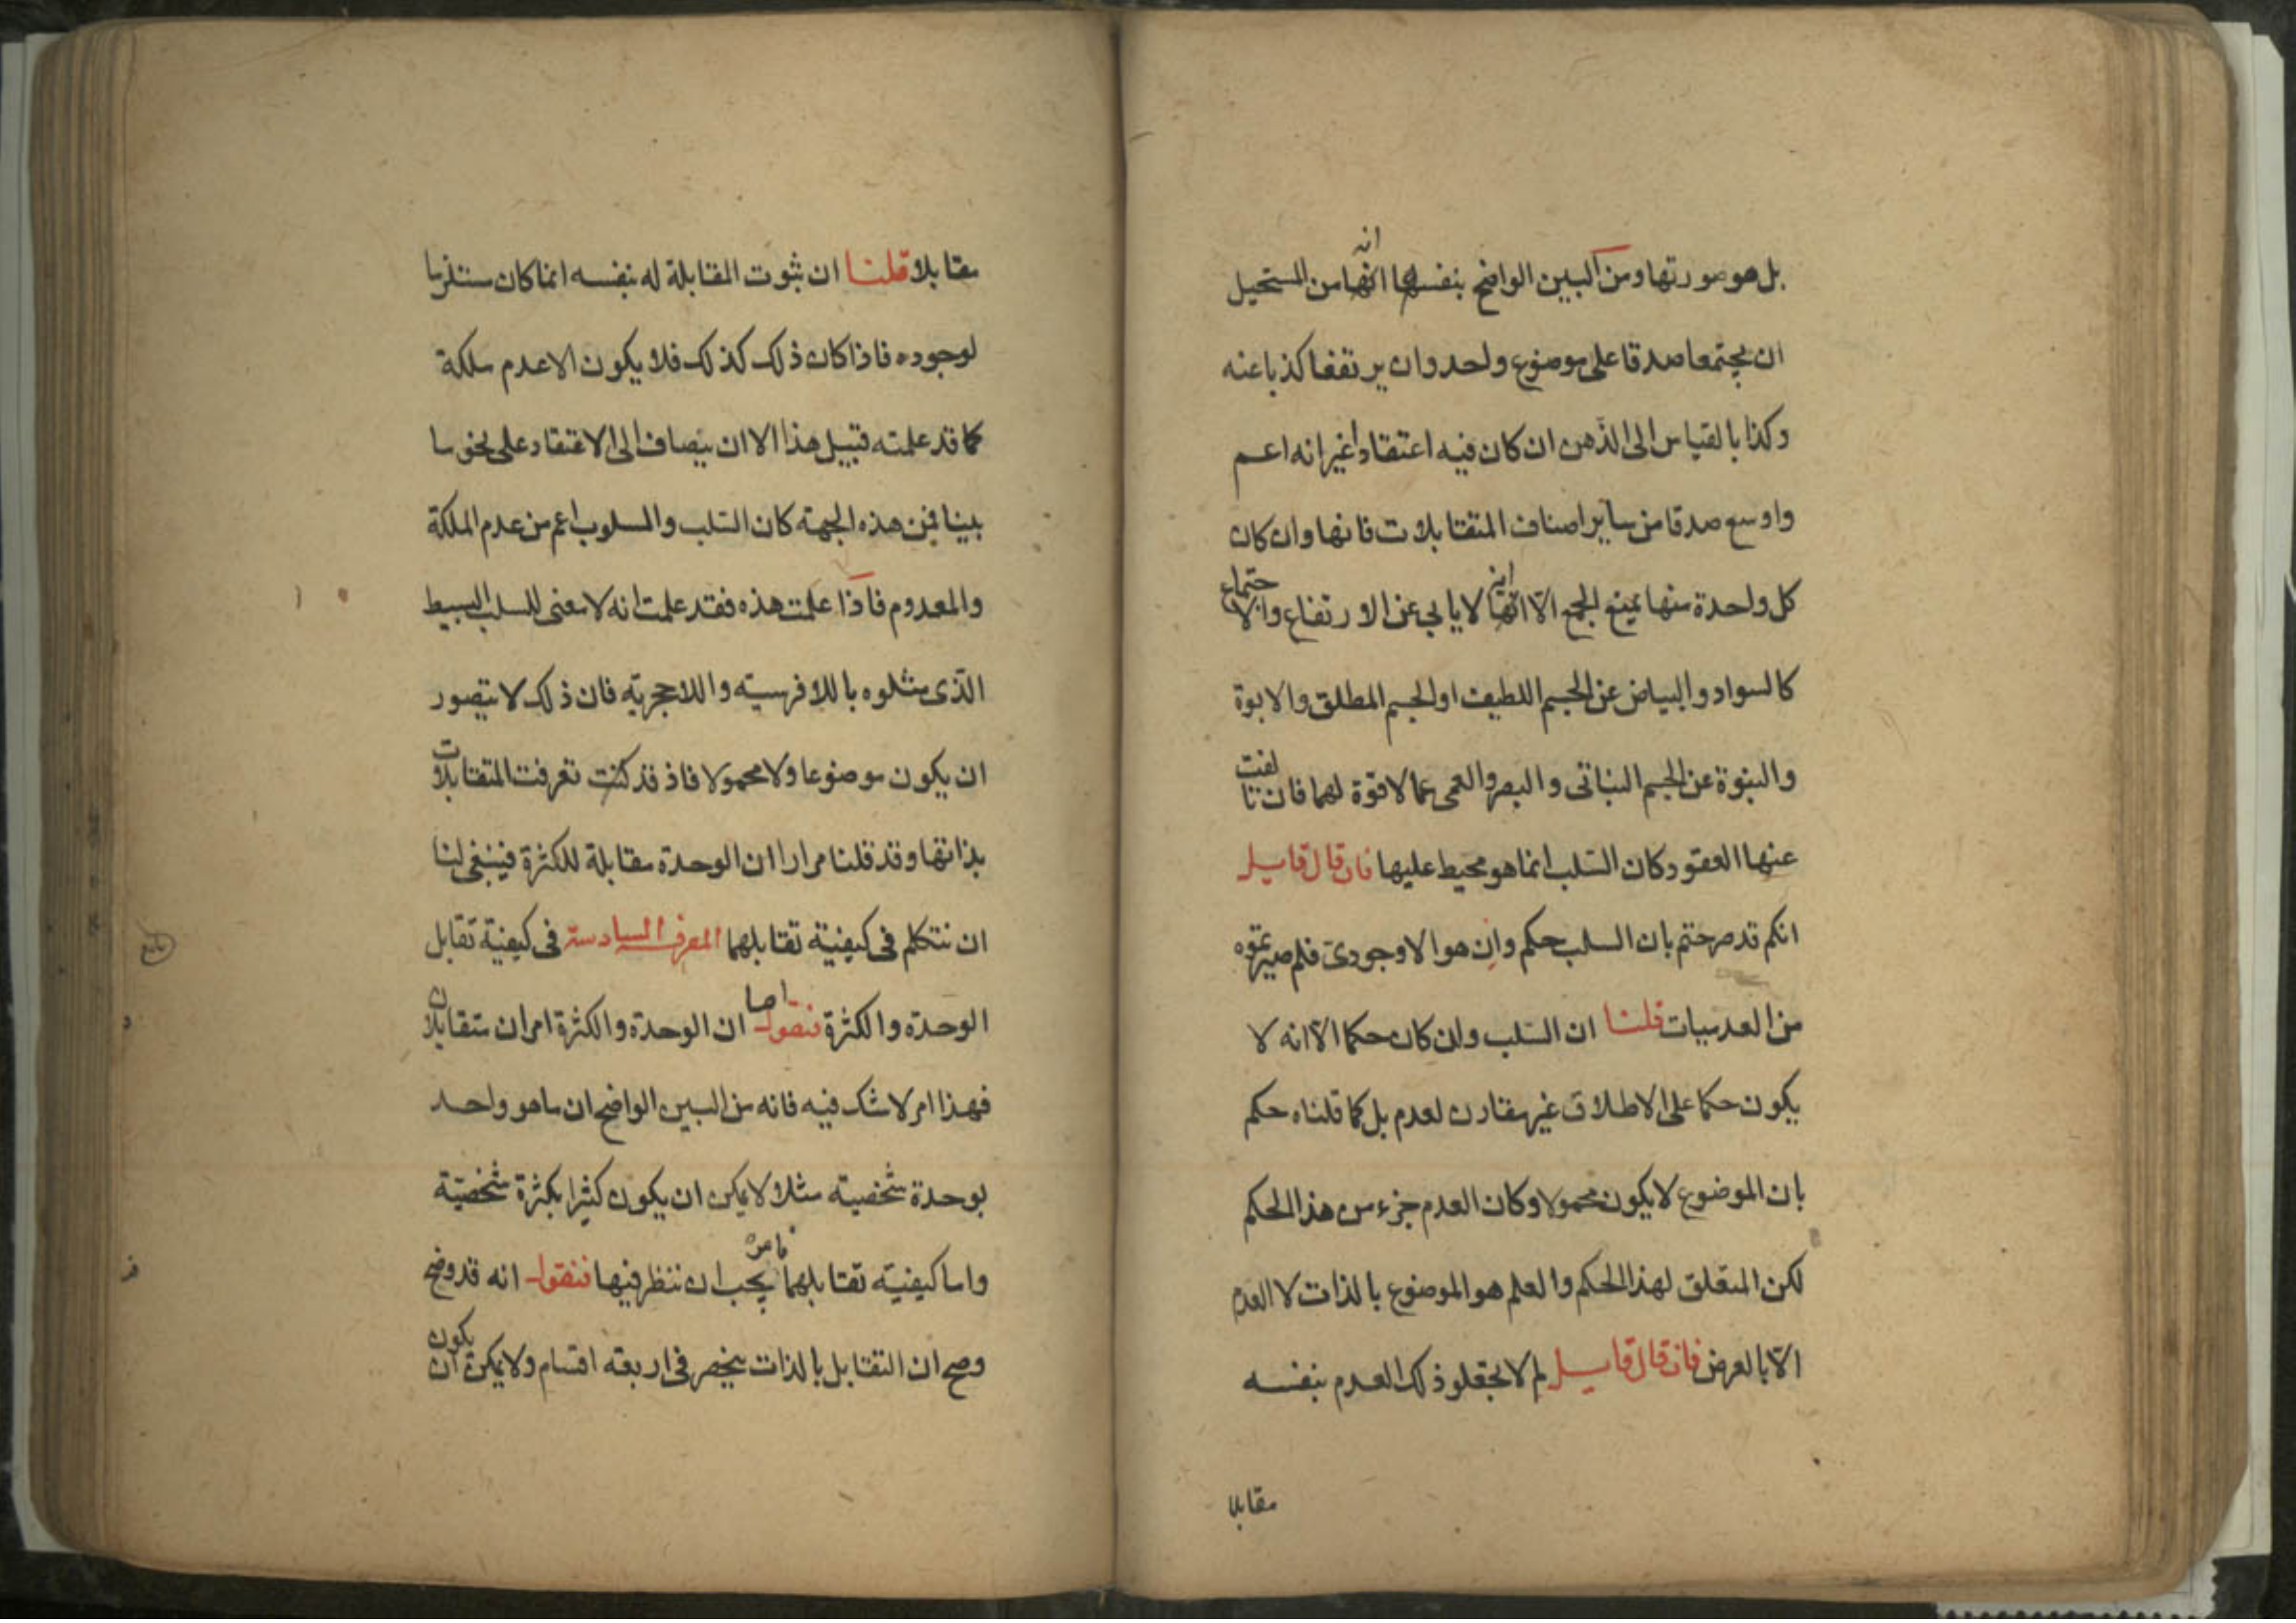 بل هو صورتها ومن البين الواضح بنفسها انه من المستحيل
ان يجتمعا صدقا على موضوع واحد وان يرتفعا كذبا عنه
وكذا بالقياس الى الذهن ان كان فيه اعتقاد غير انه اعم
واوسع صدقا من ساير اصناف المتقابلات فانها وان كان
كل واحدة منها يمنع الجمع الا انه لا يابى عن الارتفاع والاجتماع
كالسواد والبياض عن الجسم اللطيف او الجسم المطلق والابوة
والبنوة عن الجسم النباتى والبصر والعمى عما لا قوة لهما فان تالفت
عنها العقود كان السلب انما هو محيط عليها فان قال قايل
انكم قد صرحتم بان السلب حكم وان هو الا وجودى فلم صيرتموه
من العدميات قلنا ان السلب وان كان حكما الا انه لا
يكون حكما على الاطلاق غير مقارن لعدم بل كما قلناه حكم
بان الموضوع لا يكون محمولا وكان العدم جزء من هذا الحكم
لكن المتعلق لهذا الحكم والعلم هو الموضوع بالذات لا العدم
الا بالعرض فان قال قايل لم لا تجعلو ذلك العدم بنفسه
مقابلا
مقابلا قلنا ان ثبوت المقابلة له بنفسه انما كان مستلزما
لوجوده فاذا كان ذلك كذلك فلا يكون الا عدم ملكة
كما قد علمته قبيل هذا الا ان يضاف الى الاعتقاد على نحو ما
بينا فمن هذه الجهة كان السلب والمسلوب اعم من عدم الملكة
والمعدوم فاذا علمت هذه فقد علمت انه لا معنى للسلب البسيط
الذى مثلوه باللافرسية واللاحجرية فان ذلك لا يتصور
ان يكون موضوعا ولا محمولا فاذ قد كنت تعرفت المتقابلات
بذاتها وقد قلنا مرارا ان الوحدة مقابلة للكثرة فينبغى لنا
ان نتكلم فى كيفية تقابلهما المعرفة السادسة فى كيفية تقابل
الوحدة والكثرة فنقول اما ان الوحدة والكثرة امران متقابلان
فهذا امر لا شك فيه فانه من البين الواضح ان ما هو واحد
بوحدة شخصية مثلا لا يمكن ان يكون كثيرا بكثرة شخصية
واما كيفية تقابلهما فامر يجب ان ننظر فيها فنقول انه قد وضح
وصح ان التقابل بالذات ينحصر فى اربعة اقسام ولا يمكن ان يكون